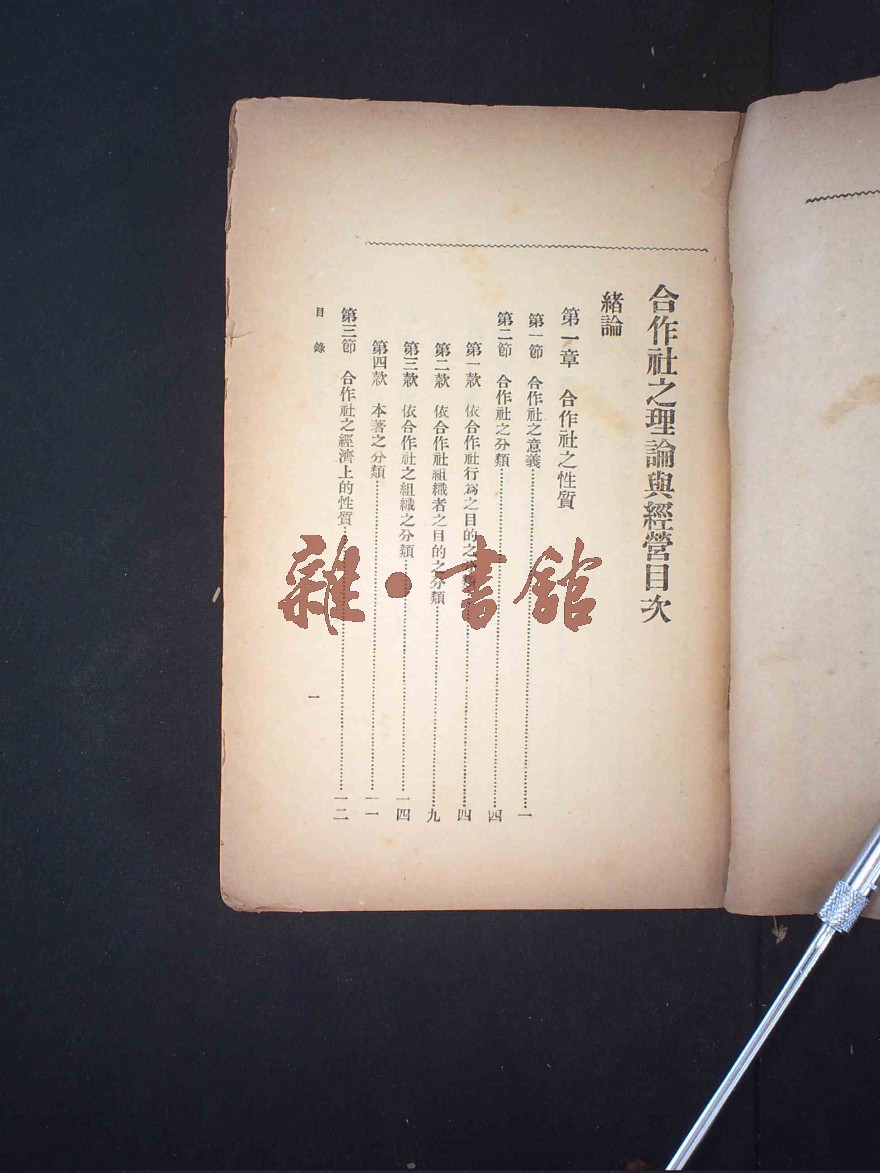 合作社之理論與經營目次
緒論
第一章 合作社之性質
第一節 合作社之意義……一
第二節 合作社之分類……四
第一款 依合作社行為之目的之分類……四
第二款 依合作社組織者之目的之分類……九
第三款 依合作社之組織之分類……一四
第四款 本著之分類……一一
第三節 合作社之經濟上的性質……一二
目錄
一
雜·書館